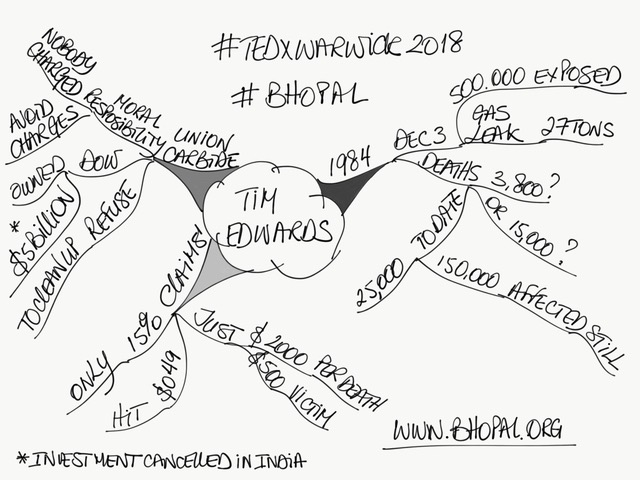 #TEDXWARWICK 2018
#BHOPAL
TIM
EDWARDS
UNION
CARBIDE
MORAL
RESPOSIBILITY
NOBODY
CHARGED
AVOID
CHARGES
DOW
OWNED
* $5BILLION
REFUSE
TO CLEAN UP
1984
DEC 3
500.000 EXPOSED
GAS
LEAK 27TONS
DEATHS 3,800?
OR 15,000?
TO DATE
25,000
150,000 AFFECTED STILL
CLAIMS'
ONLY 15%
HIT $049
JUST $2000 PER DEATH
$500 VICTIM
WWW.BHOPAL.ORG
*INVESTMENT CANCELLED IN INDIA